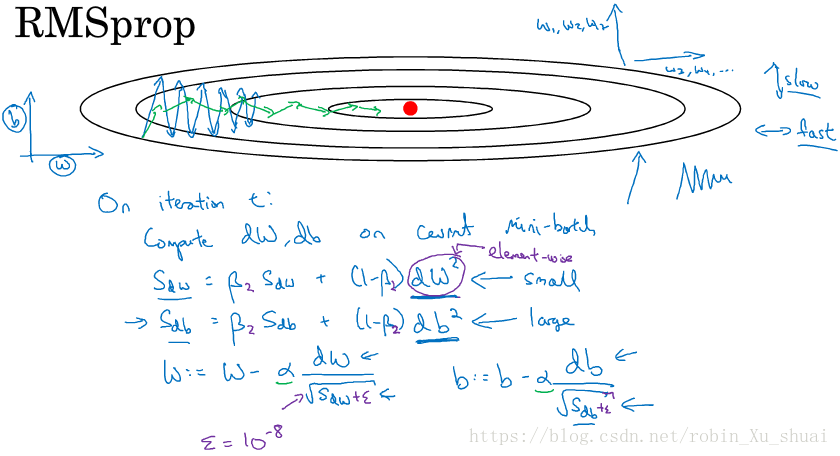 RMSprop
W₁, W₂, W₂
W₃, W₄, ...
slow
fast
b
W
On iteration t:
Compute dW, db on current mini-batch
element-wise
S_dW = β₂ S_dW + (1-β₂) dW² ← small
→ S_db = β₂ S_db + (1-β₂) db² ← large
W := W - α dW/√(S_dW+ε) ← b := b - α db/√(S_db+ε) ←
ε = 10⁻⁸
https://blog.csdn.net/robin_Xu_shuai